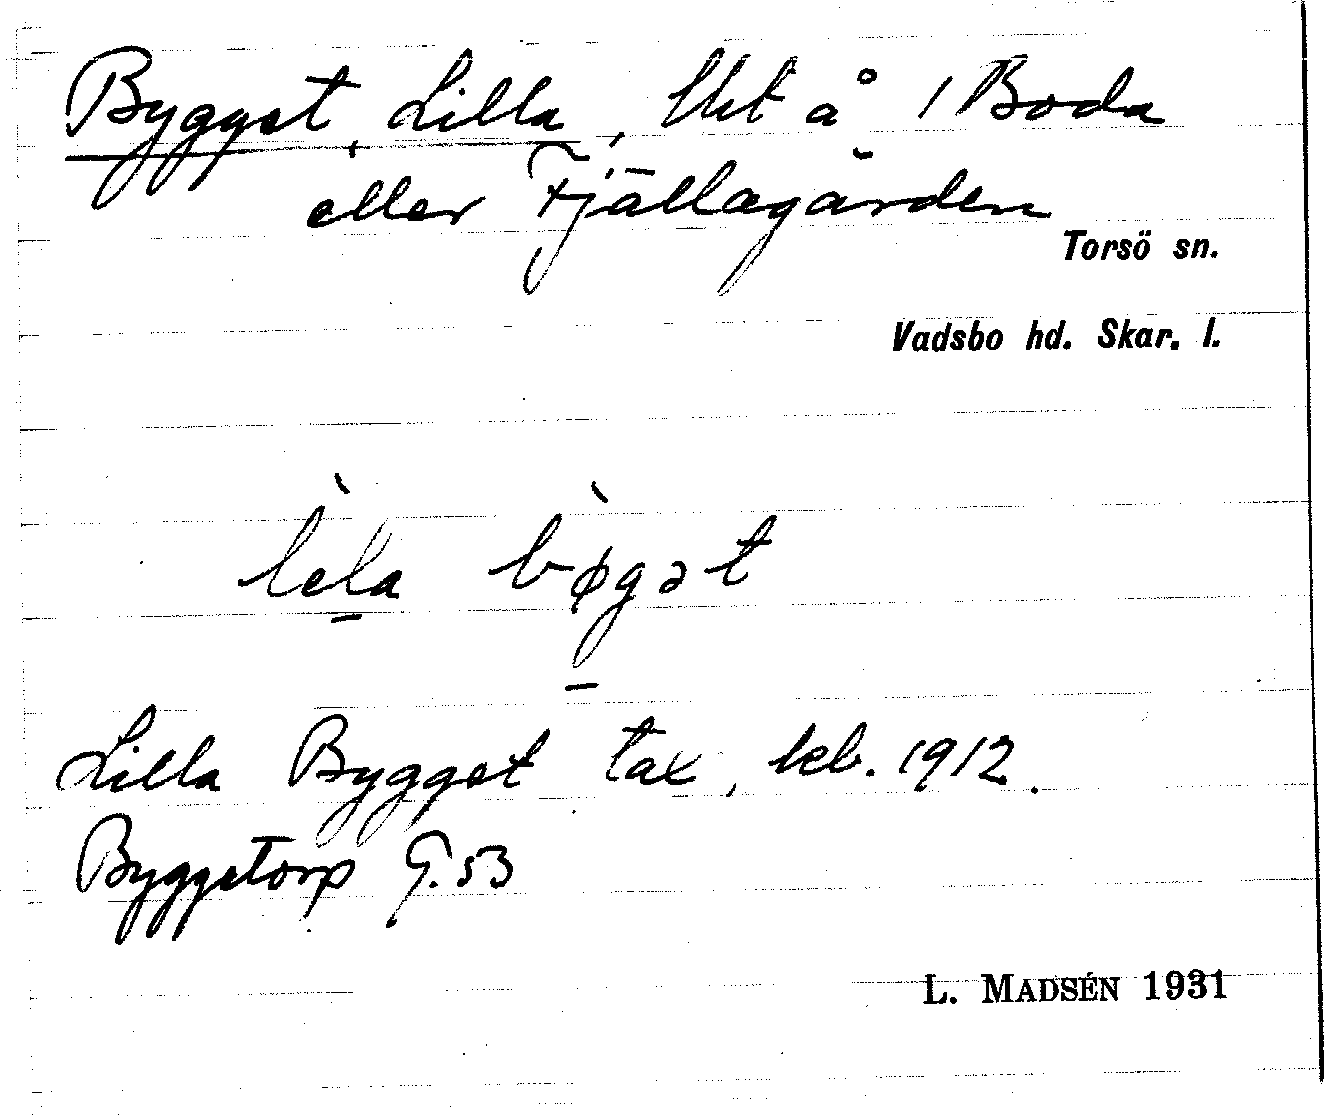 Bygget, Lilla, lht å 1 Boda
eller Fjällagården
Torsö sn.
Vadsbo hd. Skar. l.
lèla bø̀gət
Lilla Bygget tax. lkb. 1912.
Byggetorp G. 53
L. MADSÉN 1931